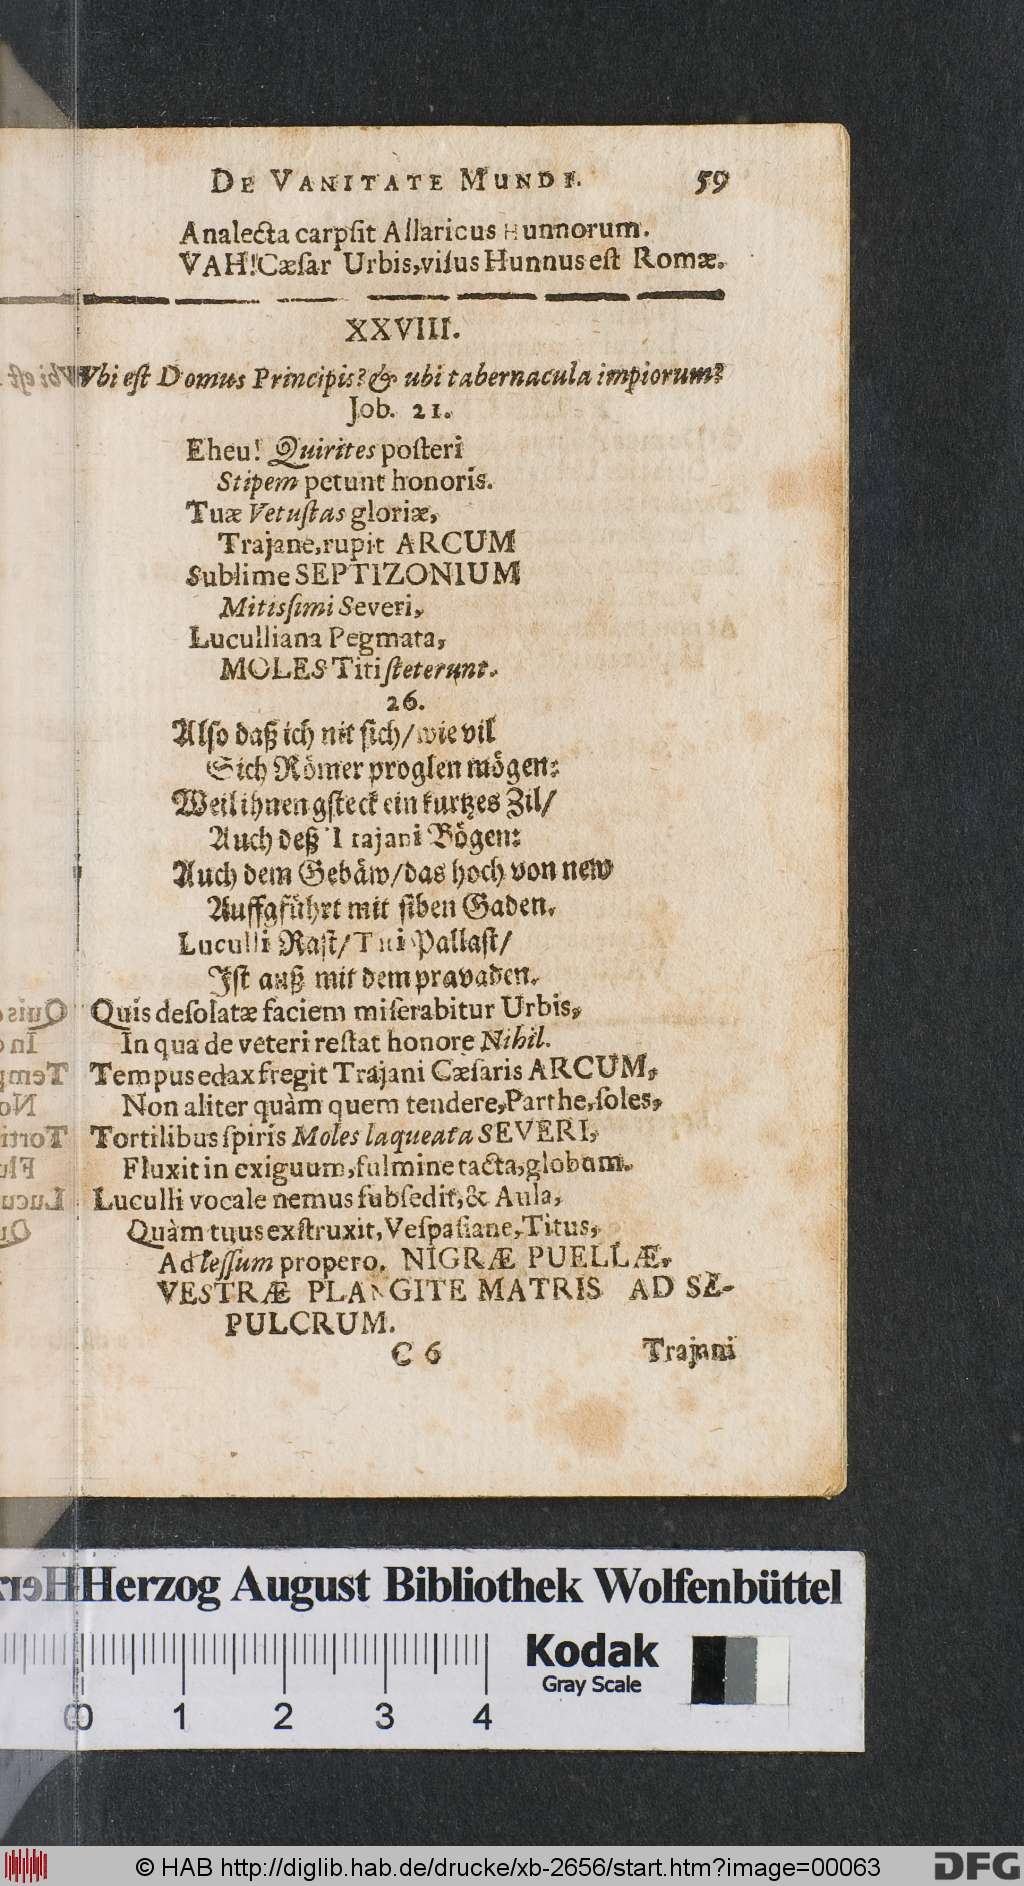 DE VANITATE MUNDI. 59
Analecta carpſit Allaricus Hunnorum.
VAH! Cæſar Urbis, viſus Hunnus eſt Romæ.
XXVIII.
Vbi eſt Domus Principis? & ubi tabernacula impiorum?
Job. 21.
Eheu! Quirites poſteri
Stipem petunt honoris.
Tuæ Vetuſtas gloriæ,
Trajane, rupit ARCUM
Sublime SEPTIZONIUM
Mitisſimi Severi,
Luculliana Pegmata,
MOLES Titi ſteterunt.
26.
Alſo daß ich nit ſich/ wie vil
Sich Römer proglen mögen:
Weil ihnen gſteckt ein kurtzes Zil/
Auch deß Trajani Bögen:
Auch dem Gebäw/ das hoch von new
Auffgführt mit ſiben Gaden.
Luculli Raſt/ Titi Pallaſt/
Iſt auß mit dem pravaden.
Quis deſolatæ faciem miſerabitur Urbis,
In qua de veteri reſtat honore Nihil.
Tempus edax fregit Trajani Cæſaris ARCUM,
Non aliter quàm quem tendere, Parthe, ſoles,
Tortilibus ſpiris Moles laqueata SEVERI,
Fluxit in exiguum, fulmine tacta, globum.
Luculli vocale nemus ſubſedit, & Aula,
Quàm tuus exſtruxit, Veſpaſiane, Titus,
Ad leſſum propero. NIGRÆ PUELLÆ,
VESTRÆ PLANGITE MATRIS AD SE-
PULCRUM.
C 6 Trajani
Herzog August Bibliothek Wolfenbüttel
Kodak
Gray Scale
0 1 2 3 4
© HAB http://diglib.hab.de/drucke/xb-2656/start.htm?image=00063
DFG